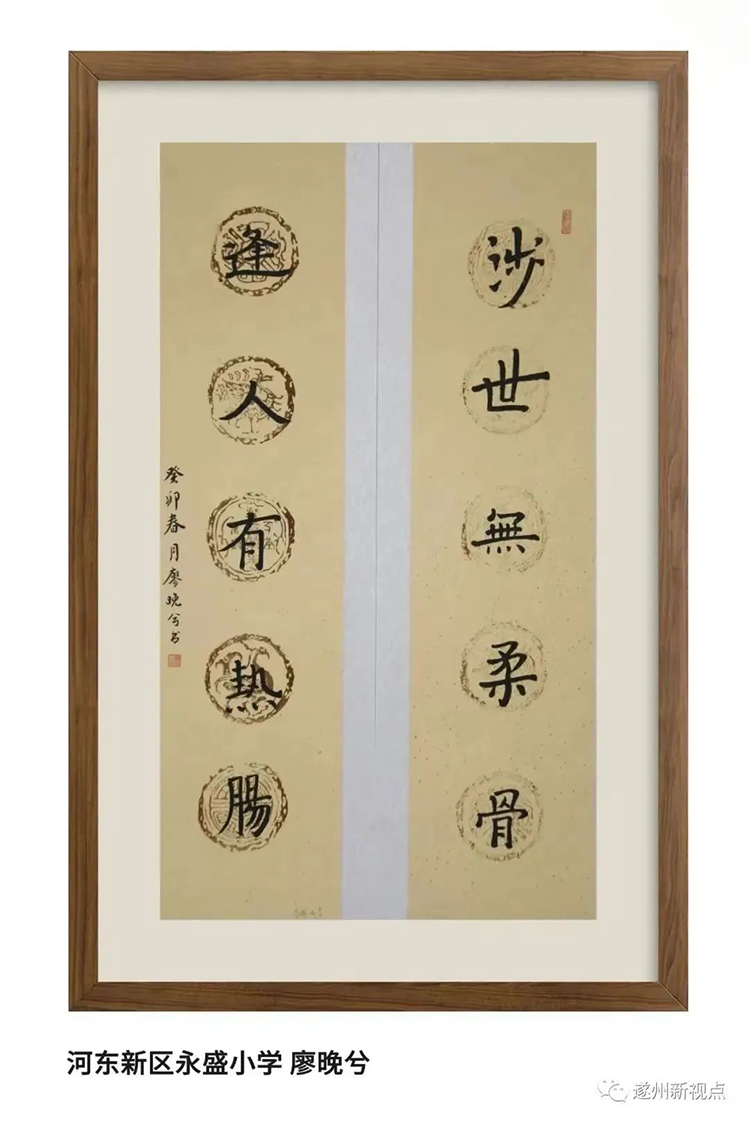 涉世無柔骨
逢人有热腸
癸卯春月廖晚兮书
河东新区永盛小学 廖晚兮
遂州新视点